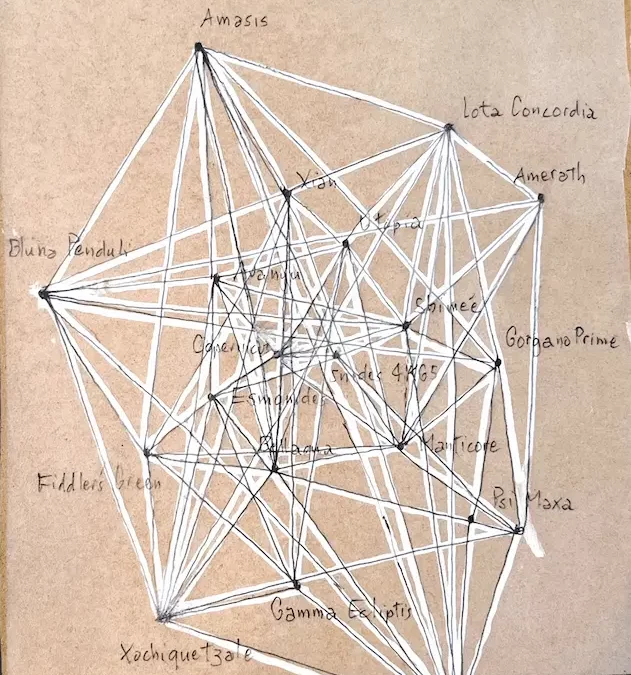 Amasis
Lota Concordia
Amerath
Xian
Utopia
Bluna Penduli
Avanyu
Shimeé
Gorgano Prime
Copernicus
4K65
Esmonides
Bellaqua
Manticore
Fiddler's Green
Psi Maxa
Gamma Ecliptis
Xochiquetzale